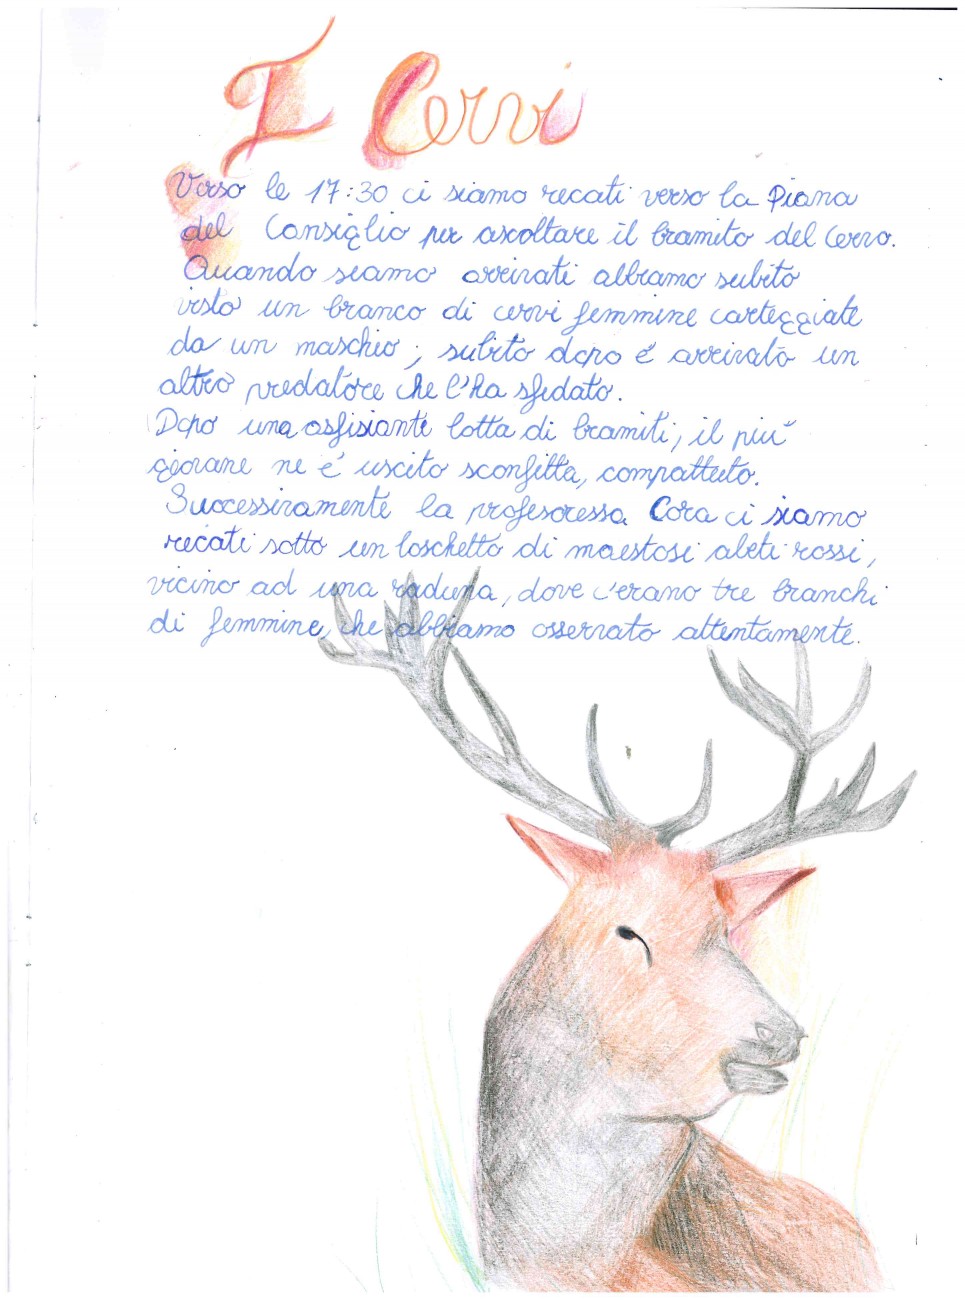 I Cervi
Verso le 17:30 ci siamo recati verso la Piana
del Consiglio per ascoltare il bramito del Cervo.
Quando siamo arrivati abbiamo subito
visto un branco di cervi femmine carteggiate
da un maschio, subito dopo é arrivato un
altro predatore che l'ha sfidato.
Dopo una asfisiante lotta di bramiti, il piú
giovane ne é uscito sconfitta, compattuto.
Successivamente la profesoressa Cora ci siamo
recati sotto un boschetto di maestosi abeti rossi,
vicino ad una raduna, dove c'erano tre branchi
di femmine, che abbiamo osservato attentamente.